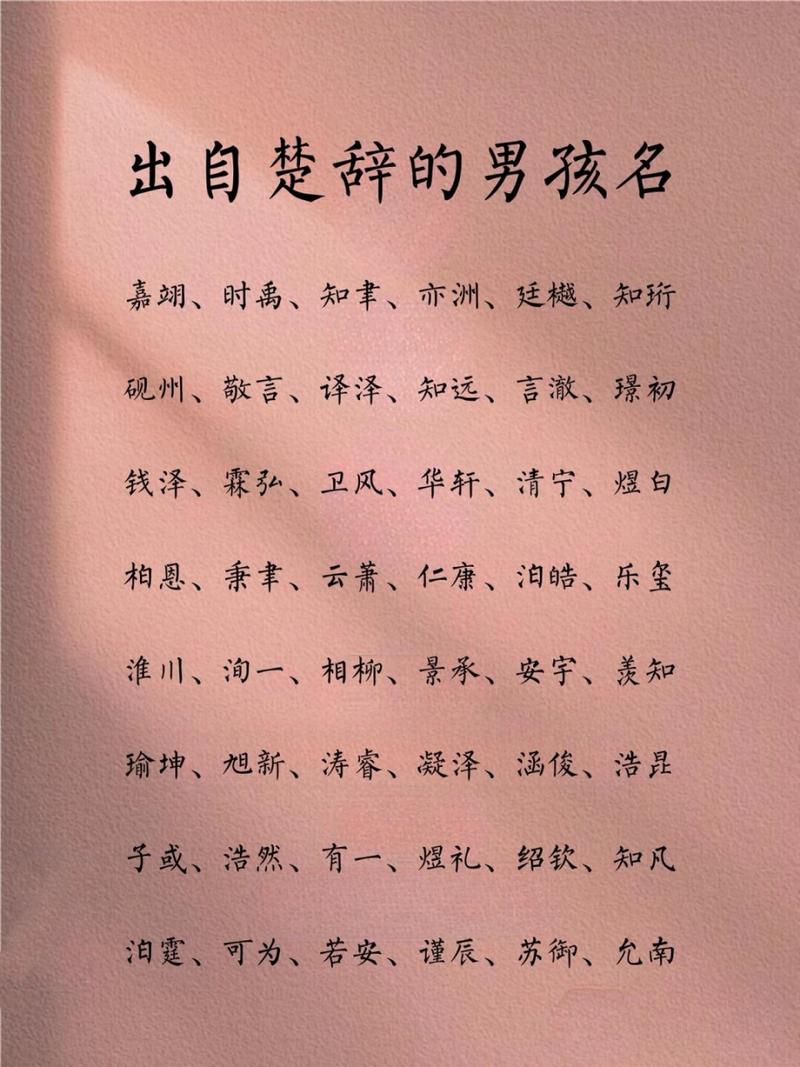 出自楚辞的男孩名
嘉翊、时禹、知聿、亦洲、廷樾、知珩
砚州、敬言、译泽、知远、言澈、璟初
钱泽、霖弘、卫风、华轩、清宁、煜白
柏恩、秉聿、云萧、仁康、泊皓、乐玺
淮川、洵一、相柳、景承、安宇、羡知
瑜坤、旭新、涛睿、凝泽、涵俊、浩昆
子或、浩然、有一、煜礼、绍钦、知凡
泊霆、可为、若安、谨辰、苏御、允南